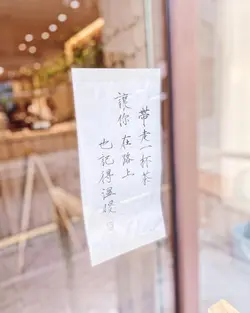 带走一杯茶
讓你在路上
也記得溫暖